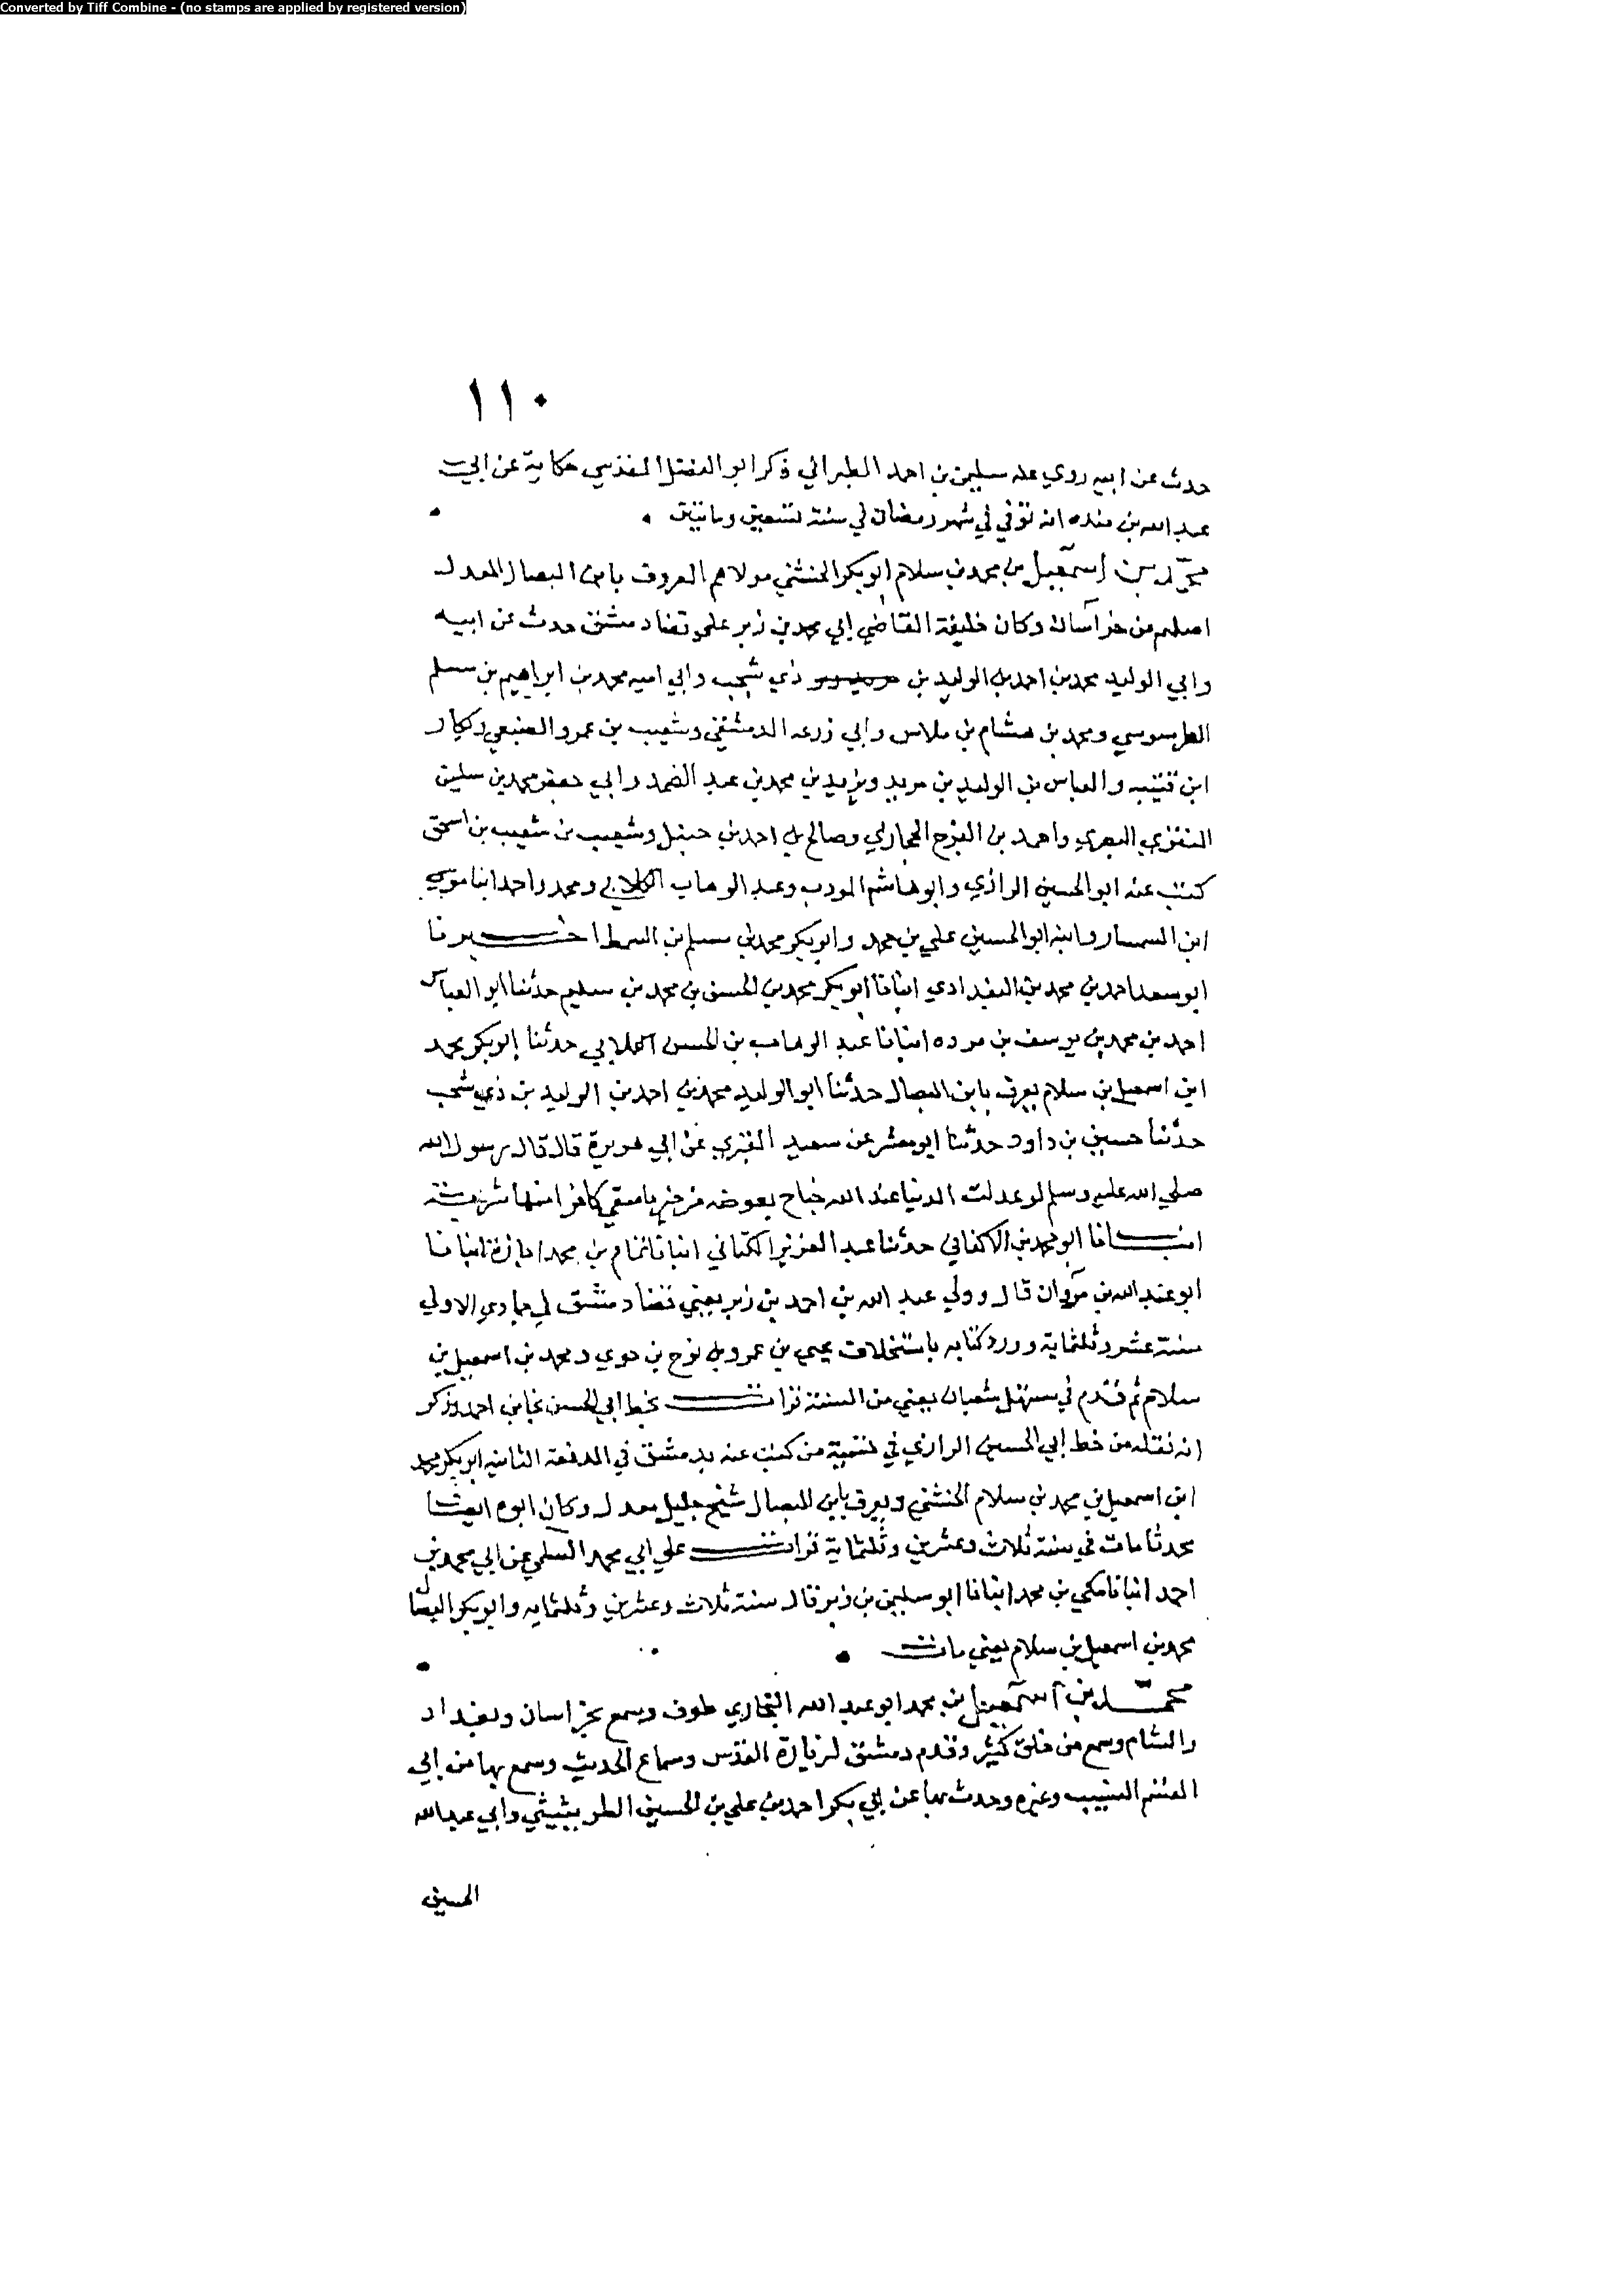 Converted by Tiff Combine - (no stamps are applied by registered version)
١١٠
حدث عن ابيه روي عنه سليمن بن احمد الطبراني ذكر ابو الفضل المقدسي حكاية عن ابي
عبد الله بن منده انه توفي في شهر رمضان في سنة تسعين ومايتين
محمد بن إسمعيل بن محمد بن سلام ابو بكر الخشني مولاهم المعروف بابن البصال المعدل
اصلهم من خراسان وكان خليفة القاضي ابي محمد بن زبر على قضا دمشق حدث عن ابيه
وابي الوليد محمد بن احمد بن الوليد بن ذي شجب وابي اميه محمد بن ابراهيم بن مسلم
الطرسوسي ومحمد بن هشام بن ملاس وابي زرعه الدمشقي وشعيب بن عمرو الضبعي وبكار
ابن قتيبه والعباس بن الوليد بن مزيد ويزيد بن محمد بن عبد الصمد وابي جعفر محمد بن سليمن
المنقري البصري واحمد بن الفرج الحجازي وصالح بن احمد بن حنبل وشعيب بن شعيب بن اسحق
كتب عنه ابو الحسين الرازي وابو هاشم المودب وعبد الوهاب الكلابي ومحمد واحمد ابنا موسي
ابن السمسار وابنه ابو الحسين علي بن محمد وابو بكر محمد بن مسلم بن السمط اخبرنا
ابو سعد احمد بن محمد بن البغدادي انبانا ابو بكر محمد بن الحسن بن محمد بن سليم حدثنا ابو العباس
احمد بن محمد بن يوسف بن مرده انبانا عبد الوهاب بن الحسن الكلابي حدثنا ابو بكر محمد
ابن اسمعيل بن سلام يعرف بابن البصال حدثنا ابو الوليد محمد بن احمد بن الوليد بن ذي شجب
حدثنا حسين بن داود حدثنا ابو معشر عن سعيد المقبري عن ابي هريرة قال قال رسول الله
صلي الله عليه وسلم لو عدلت الدنيا عند الله جناح بعوضه من خير ما سقي كافرا منها شربة
انبانا ابو محمد بن الاكفاني حدثنا عبد العزيز الكتاني انبانا تمام بن محمد اجازة انبانا
ابو عبد الله بن مروان قال وولي عبد الله بن احمد بن زبر يعني قضا دمشق في جمادي الاولي
سنة عشر وثلثماية وورد كتابه باستخلاف يحيي بن عمرو بن نوح بن حوي ومحمد بن اسمعيل بن
سلام ثم قدم في مستهل شعبان يعني من السنة قرات بخط ابي الحسن نجا بن احمد وذكر
انه نقله من خط ابي الحسين الرازي في تسمية من كتب عنه بدمشق في الدفعة الثانيه ابو بكر محمد
ابن اسمعيل بن محمد بن سلام الخشني ويعرف بابن البصال شيخ جليل معدل وكان ابوه ايضا
محدثا مات في سنة ثلاث وعشرين وثلثماية قرات علي ابي محمد السلمي عن ابي محمد بن
احمد انبانا مكي بن محمد انبانا ابو سليمن بن زبر قال سنة ثلاث وعشرين وثلثمايه وابو بكر البصال
محمد بن اسمعيل بن سلام يعني مات
محمد بن اسمعيل بن محمد ابو عبد الله البخاري طوف وسمع بخراسان وبغداد
والشام وسمع من خلق كثير وقدم دمشق لزيارة القدس وسماع الحديث وسمع بها من ابي
القسم النسيب وغيره وحدث بها عن ابي بكر احمد بن علي بن الحسين الطريثيثي وابي عبد الله
الحسين